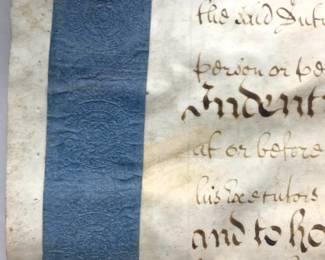 the said
person or pe
Indent
at or before
his Executors
and to ho